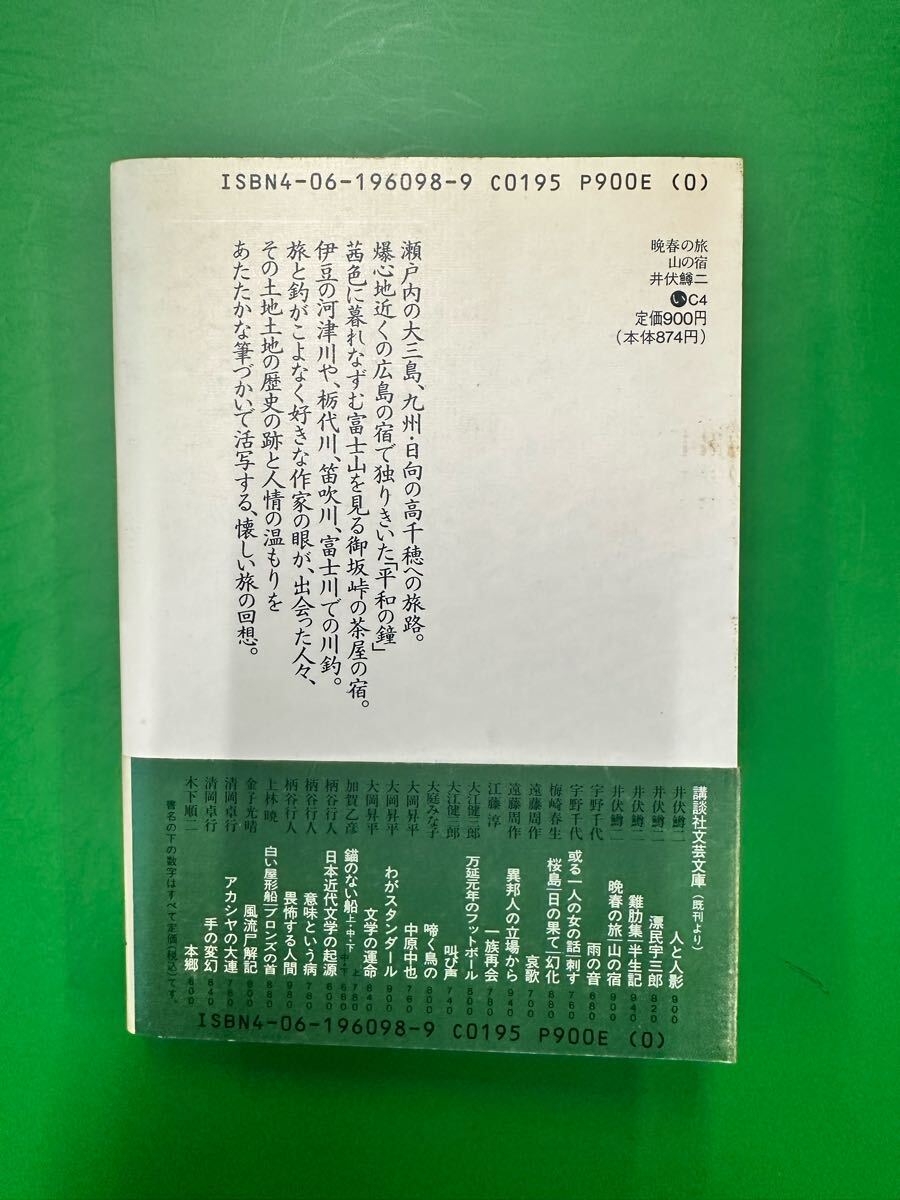 ISBN4-06-196098-9 C0195 P900E (0)
晩春の旅
山の宿
井伏鱒二
い C4
定価900円
(本体874円)
瀬戸内の大三島、九州・日向の高千穂への旅路。
爆心地近くの広島の宿で独りきいた「平和の鐘」
茜色に暮れなずむ富士山を見る御坂峠の茶屋の宿。
伊豆の河津川や、栃代川、笛吹川、富士川での川釣。
旅と釣がこよなく好きな作家の眼が、出会った人々、
その土地土地の歴史の跡と人情の温もりを
あたたかな筆づかいで活写する、懐しい旅の回想。
講談社文芸文庫(既刊より)
井伏鱒二 人と人影 900
井伏鱒二 漂民宇三郎 820
井伏鱒二 雞肋集｜半生記 940
井伏鱒二 晩春の旅｜山の宿 900
宇野千代 雨の音 680
宇野千代 或る一人の女の話｜刺す
梅崎春生 桜島｜日の果て｜幻化 880
遠藤周作 哀歌 700
遠藤周作 異邦人の立場から 940
江藤淳 一族再会 780
大江健三郎 万延元年のフットボール
大江健三郎 叫び声 740
大庭みな子 啼く鳥の 800
大岡昇平 中原中也 760
大岡昇平 わがスタンダール 900
大岡昇平 文学の運命 840
加賀乙彦 錨のない船 上・中・下 上780 中・下680
柄谷行人 日本近代文学の起源 600
柄谷行人 意味という病 780
柄谷行人 畏怖する人間 980
上林暁 白い屋形船｜ブロンズの首 880
金子光晴 風流尸解記 900
清岡卓行 アカシヤの大連 780
清岡卓行 手の変幻 840
木下順二 本郷 800
書名の下の数字はすべて定価(税込)です。
ISBN4-06-196098-9 C0195 P900E (0)